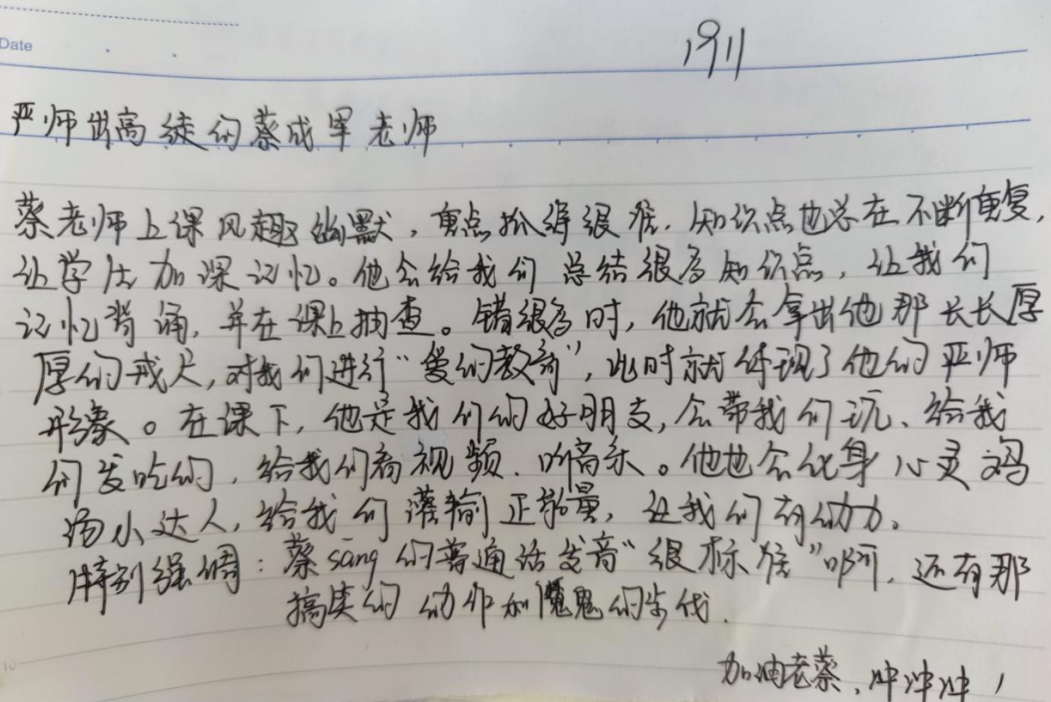 Date
1911
严师出高徒的蔡成军老师
蔡老师上课风趣幽默，重点抓得很准，知识点也总在不断重复，
让学生加深记忆。他会给我们总结很多知识点，让我们
记忆背诵，并在课上抽查。错很多时，他就会拿出他那长长厚
厚的戒尺，对我们进行“爱的教育”，此时就体现了他的严师
形象。在课下，他是我们的好朋友，会带我们玩、给我
们发吃的，给我们看视频、听音乐。他也会化身心灵鸡
汤小达人，给我们灌输正能量，让我们有动力。
特别强调：蔡sāng的普通话发音“很标准”啊，还有那
搞笑的动作和魔鬼的步伐．
加油老蔡，冲冲冲！